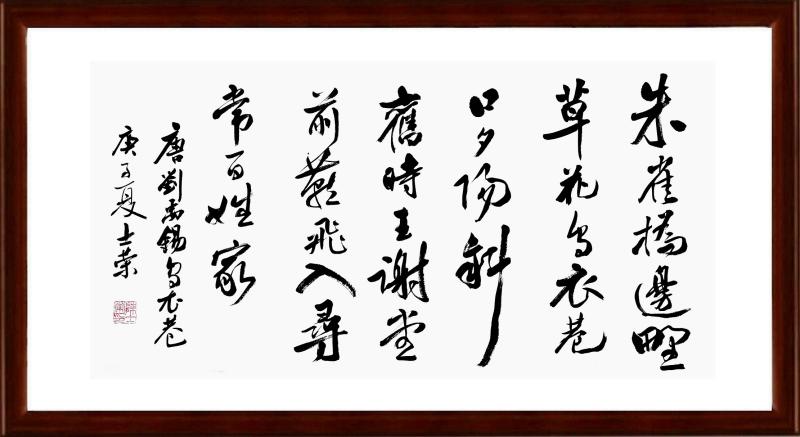 朱雀橋邊野
草花烏衣巷
口夕陽斜
舊時王謝堂
前燕飛入尋
常百姓家
唐劉禹錫烏衣巷
庚子夏士榮